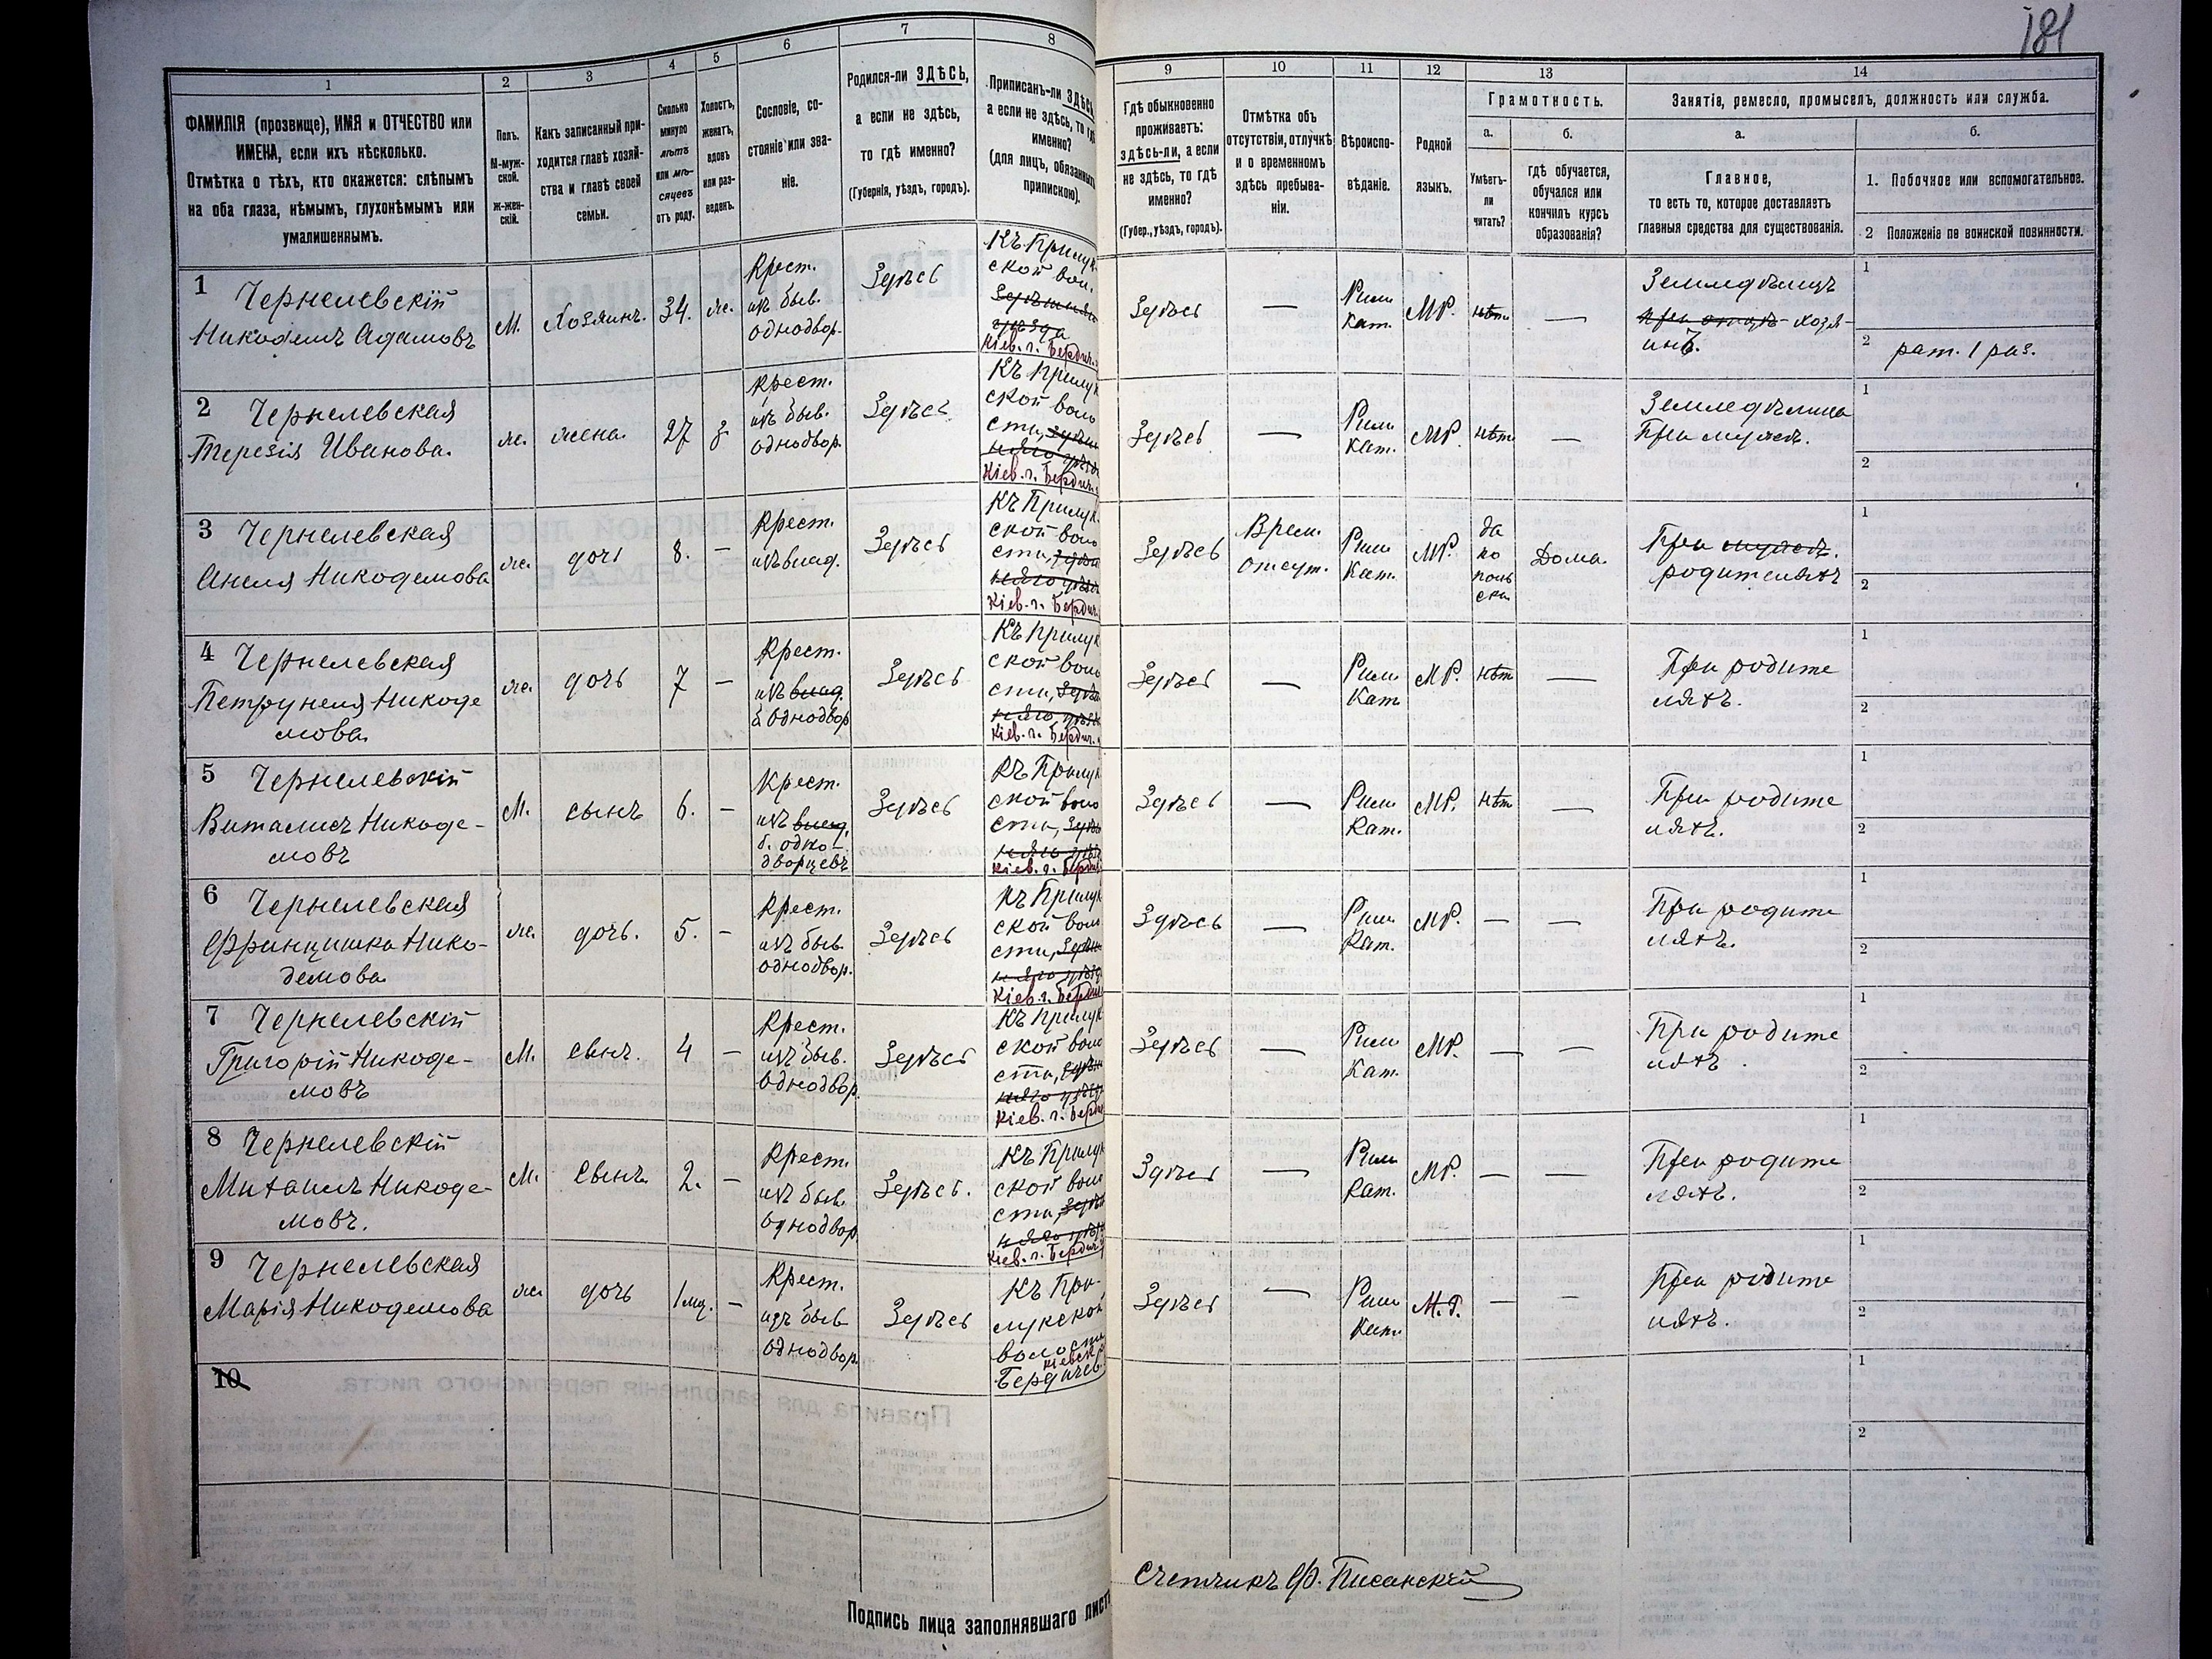 181
1
2
3
4
5
6
7
8
9
10
11
12
13
14
ФАМИЛІЯ (прозвище), ИМЯ и ОТЧЕСТВО или
ИМЕНА, если ихъ нѣсколько.
Отмѣтка о тѣхъ, кто окажется: слѣпымъ
на оба глаза, нѣмымъ, глухонѣмымъ или
умалишеннымъ.
Полъ.
М-муж-
ской.
Ж-жен-
скій.
Какъ записанный при-
ходится главѣ хозяй-
ства и главѣ своей
семьи.
Сколько
минуло
лѣтъ
или мѣ-
сяцевъ
отъ роду.
Холостъ,
женатъ,
вдовъ
или раз-
веденъ.
Сословіе, со-
стояніе или зва-
ніе.
Родился-ли ЗДѢСЬ,
а если не здѣсь,
то гдѣ именно?
(Губернія, уѣздъ, городъ).
Приписанъ-ли ЗДѢСЬ
а если не здѣсь, то гдѣ
именно?
(для лицъ, обязанныхъ
припискою).
Гдѣ обыкновенно
проживаетъ:
здѣсь-ли, а если
не здѣсь, то гдѣ
именно?
(Губер., уѣздъ, городъ).
Отмѣтка объ
отсутствіи, отлучкѣ
и о временномъ
здѣсь пребыва-
ніи.
Вѣроиспо-
вѣданіе.
Родной
языкъ.
Грамотность.
а.
б.
Умѣетъ-
ли
читать?
гдѣ обучается,
обучался или
кончилъ курсъ
образованія?
Занятіе, ремесло, промыселъ, должность или служба.
а.
б.
Главное,
то есть то, которое доставляетъ
главныя средства для существованія.
1. Побочное или вспомогательное.
2 Положеніе по воинской повинности.
1
Чернелевскій
Никодимъ Адамовъ
М.
Хозяинъ.
34.
же.
Крест.
изъ быв.
однодвор.
Здѣсь
Къ Прилук
ской вол.
Кіев. г. Бердич.
Здѣсь
—
Рим
Кат.
МР.
нѣт
—
Земледѣлецъ
при отцѣ хозя-
инъ.
1
2
рат. 1 раз.
2
Чернелевская
Терезія Иванова.
же.
жена.
27
з
Крест.
изъ быв.
однодвор.
Здѣсь
Къ Прилук
ской воло
сти,
Кіев. г. Бердич.
Здѣсь
—
Рим
Кат.
МР.
нѣт
—
Земледѣлица
При мужѣ.
1
2
3
Чернелевская
Анеля Никодемова
же.
дочь
8.
—
Крест.
изъ
Здѣсь
Къ Прилук
ской воло
сти,
Кіев. г. Бердич.
Здѣсь
Врем.
отсут.
Рим
Кат.
МР.
да
по
поль
ски
Дома.
При мужѣ.
родителяхъ
1
2
4
Чернелевская
Петрунеля Никоде
мова
же.
дочь
7
—
Крест.
изъ
б однодвор
Здѣсь
Къ Прилук
ской воло
сти,
Кіев. г. Бердич.
Здѣсь
—
Рим
Кат
МР.
нѣт
—
При родите
ляхъ.
1
2
5
Чернелевскій
Виталисъ Никоде-
мовъ
М.
сынъ
6.
—
Крест.
изъ
б. одно-
дворцевъ
Здѣсь
Къ Прилук
ской воло
сти,
Кіев. г. Бердич
Здѣсь
—
Рим
Кат.
МР.
нѣт
—
При родите
ляхъ.
1
2
6
Чернелевская
Францишка Нико-
демова
же.
дочь.
5.
—
Крест.
изъ быв
однодвор.
Здѣсь
Къ Прилук
ской воло
сти,
Кіев. г. Бердич
Здѣсь
—
Рим
Кат.
МР.
—
—
При родите
ляхъ.
1
2
7
Чернелевскій
Григорій Никоде-
мовъ
М.
сынъ.
4
—
Крест.
изъ быв.
однодвор.
Здѣсь
Къ Прилук
ской воло
сти,
Кіев. г. Бердич
Здѣсь
—
Рим
Кат.
МР.
—
—
При родите
ляхъ
1
2
8
Чернелевскій
Михаилъ Никоде-
мовъ.
М.
сынъ
2.
—
Крест.
изъ быв.
однодвор
Здѣсь.
Къ Прилук
ской воло
сти,
Кіев. г. Бердич.
Здѣсь
—
Рим
Кат.
МР.
—
—
При родите
ляхъ.
1
2
9
Чернелевская
Марія Никодемова
же
дочь
1 мц.
—
Крест.
изъ быв
однодвор.
Здѣсь
Къ При-
лукской
волости
Кіевск
Бердичев.
Здѣсь
—
Рим
Кат
М.Р.
—
—
При родите
ляхъ.
1
2
10
1
2
Счетчикъ Ф. Писанскій
Подпись лица заполнявшаго листъ